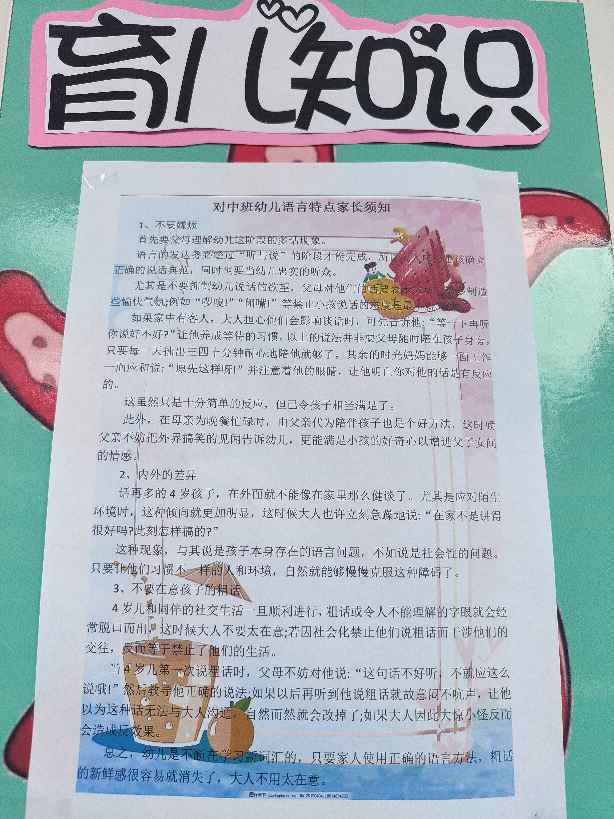 育儿知识
对中班幼儿语言特点家长须知
1、不要嫌烦
首先要父母理解幼儿这阶段的多话现象。
语言的发达务必经过“听与说”的阶段才能完成，
正确的说话典范，同时也要当幼儿忠实的听众。
尤其是不要抑制幼儿说话的欲望，父母对他
些愉快气氛；例如“啰嗦！”“闭嘴！”等禁止小孩说话的
如果家中有客人，大人担心他们会影响谈话时，可先告诉他：“等一下再听
你说好不好？”让他养成等待的习惯，以上的说法并非要父母随时陪在孩子身旁。
只要每一天抽出三四十分钟耐心地陪他就够了，其余的时光妈妈能够一面工作
一面应和说：“原先这样呀！”并注意着他的眼睛，让他明白你对他的话是有反应
的。
这虽然只是十分简单的反应，但已令孩子相当满足了。
此外，在母亲为晚餐忙碌时，由父亲代为陪伴孩子也是个好方法，这时候
父亲不妨把外界搞笑的见闻告诉幼儿，更能满足小孩的好奇心以增进父子女间
的情感。
2、内外的差异
话再多的4岁孩子，在外面就不能像在家里那么健谈了。尤其是应对陌生
环境时，这种倾向就更加明显，这时候大人也许立刻急躁地说：“在家不是讲得
很好吗？此刻怎样搞的？”
这种现象，与其说是孩子本身存在的语言问题，不如说是社会性的问题。
只要让他们习惯不一样的人和环境，自然就能够慢慢克服这种障碍了。
3、不要在意孩子的粗话
4岁儿和同伴的社交生活一旦顺利进行，粗话或令人不能理解的字眼就会经
常脱口而出，这时候大人不要太在意；若因社会化禁止他们说粗话而干涉他们的
交往，反而等于禁止了他们的生活。
当4岁儿第一次说粗话时，父母不妨对他说：“这句话不好听，不就应这么
说哦！”然后教导他正确的说法；如果以后再听到他说粗话就故意闷不吭声，让他
以为这种话无法与大人沟通，自然而然就会改掉了；如果大人因此大惊小怪反而
会造成反效果。
总之，幼儿是不断在学习新词汇的，只要家人使用正确的语言方法，粗话
的新鲜感很容易就消失了，大人不用太在意。